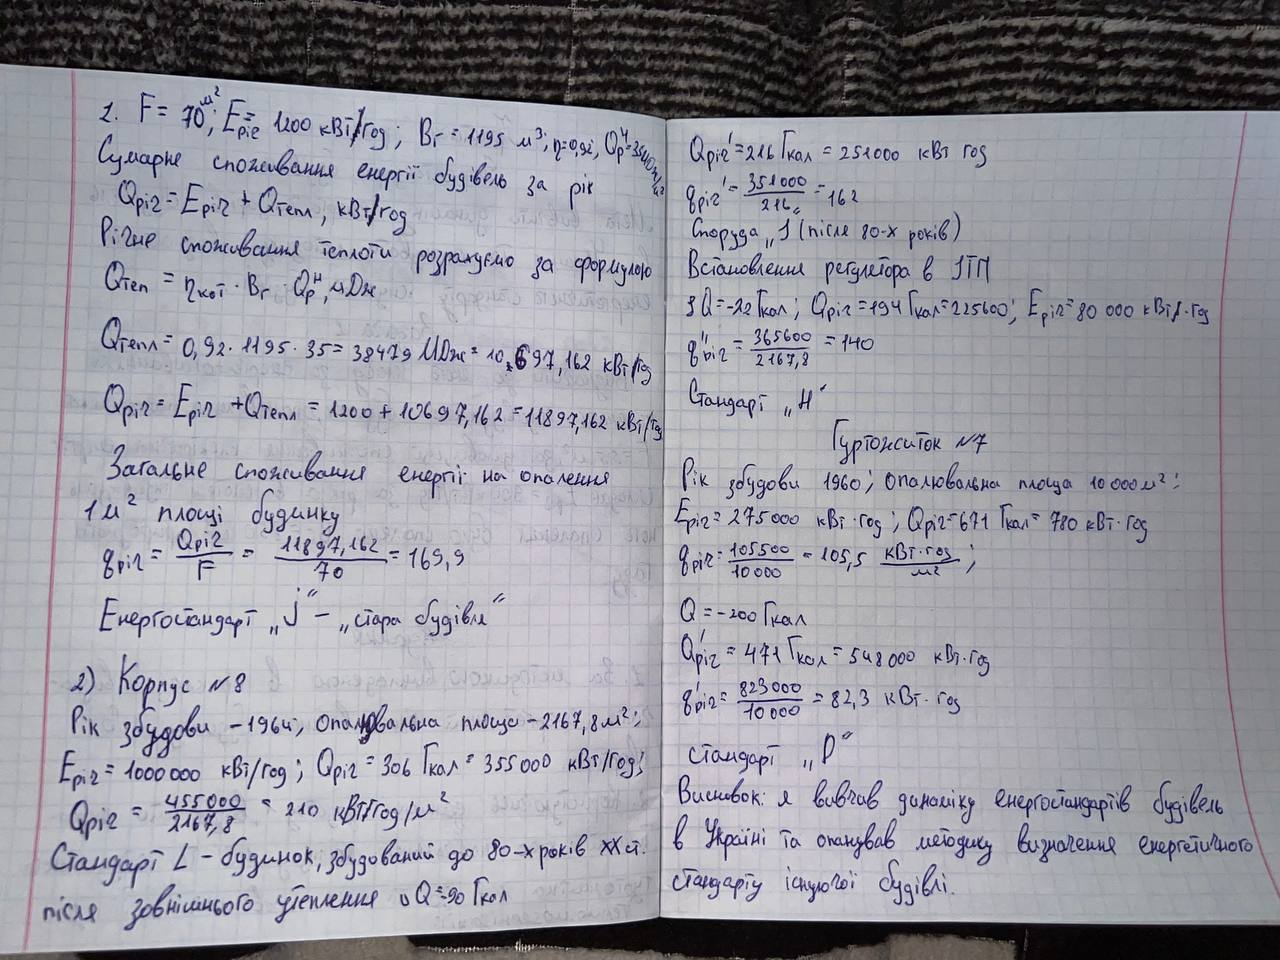 1. F = 70 м²; Eріг = 1200 кВт/год; Bг = 1195 м³; η=0,92; Qрᴴ=
Сумарне споживання енергії будівель за рік
Qріг = Eріг + Qтепл, кВт/год
Річне споживання теплоти розрахуємо за формулою
Qтеп = ηкот · Bг · Qрᴴ, мДж
Qтепл = 0,92 · 1195 · 35 = 38479 МДж = 10.697,162 кВт/год
Qріг = Eріг + Qтепл = 1200 + 10697,162 = 11897,162 кВт/год
Загальне споживання енергії на опалення
1 м² площі будинку
qріг = Qріг/F = 11897,162/70 = 169,9
Енергостандарт „j“ – „стара будівля“
2) Корпус №8
Рік збудови – 1964, опалювальна площа – 2167,8 м²;
Eріг = 1000000 кВт/год; Qріг = 306 Гкал = 355000 кВт/год;
Qріг = 455000/2167,8 = 210 кВт/год/м²
Стандарт L – будинок, збудований до 80-х років XX ст.
після зовнішнього утеплення Q = 90 Гкал
Qріг' = 216 Гкал = 251000 кВт год
qріг' = 351000/216 = 162
Споруда „J (після 80-х років)
Встановлення регулетора в ІТП
Q = -22 Гкал; Qріг = 194 Гкал = 225600; Eріг = 80 000 кВт/·год
q''ріг = 365600/2167,8 = 140
Стандарт „H“
Гуртожиток №7
Рік збудови 1960; опалювальна площа 10 000 м²;
Eріг = 275000 кВт·год; Qріг = 671 Гкал = 780 кВт·год
qріг = 105500/10000 = 105,5 кВт·год/м²;
Q = -200 Гкал
Q'ріг = 471 Гкал = 548000 кВт·год
q'ріг = 823000/10000 = 82,3 кВт·год
стандарт „D“
Висновок: я вивчав динаміку енергостандартів будівель
в Україні та опанував методику визначення енергетичного
стандарту існуючої будівлі.